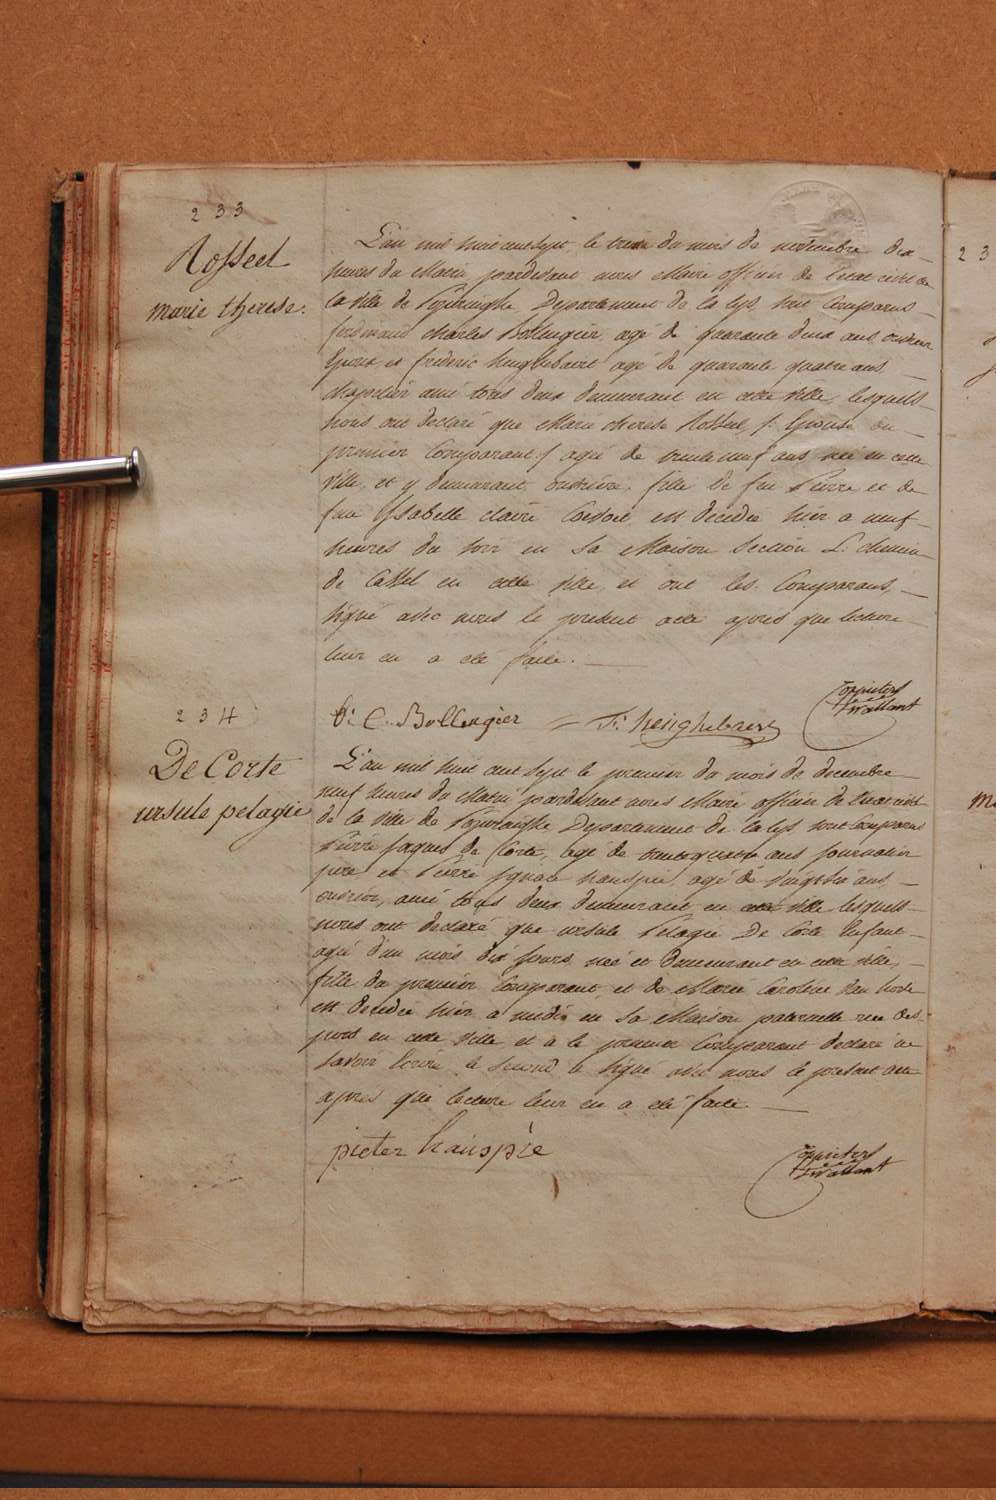 233
Rosseel
marie therese.
L'an mil huit cent sept, le trente du mois de novembre dix
heures du Matin pardevant nous Maire officier de l'etat civil de
la ville de Poperinghe Departement de la Lys, sont Comparus
ferdinand charles Bollengier, agé de quarante deux ans
Epoux et frederic henghebaert agé de quarante quatre ans
chapelier ami tous deux demeurant en cette ville, lesquels
nous ont declaré que Marie therese Rosseel, /: Epouse du
premier Comparant / agée de trente neuf ans née en cette
ville, et y demeurant ouvriere, fille de feu Pierre et de
feue Ysabelle claire est decedée hier a neuf
heures du soir en sa Maison Section L: chemin
de Cassel en cette ville, et ont les Comparans,
signé avec nous le present acte après que lecture
leur en a eté faite.
f: C. Bollengier = F: henghebaert
234
De Corte
ursule pelagie
L'an mil huit cent sept le premier du mois de decembre
neuf heures du Matin pardevant nous Maire officier de l'etat civil
de la ville de Poperinghe Departement de la Lys, sont Comparus
Pierre jaques de Corte, agé de trente quatre ans journalier
pere et Pierre Ignace hauspie, agé de vingt six ans,
ouvrier, ami tous deux demeurant en cette ville lesquels
nous ont declaré que ursule Pelagie De Corte Enfant
agé d'un mois dix jours, née et demeurant en cette ville,
fille du premier Comparant, et de Marie Caroline
est decedée hier a midi en sa Maison paternelle rue des
pots en cette ville et à le premier Comparant declaré ne
savoir Ecrire, le second à signé avec nous le present acte
après que lecture leur en a eté faite
pieter hauspie